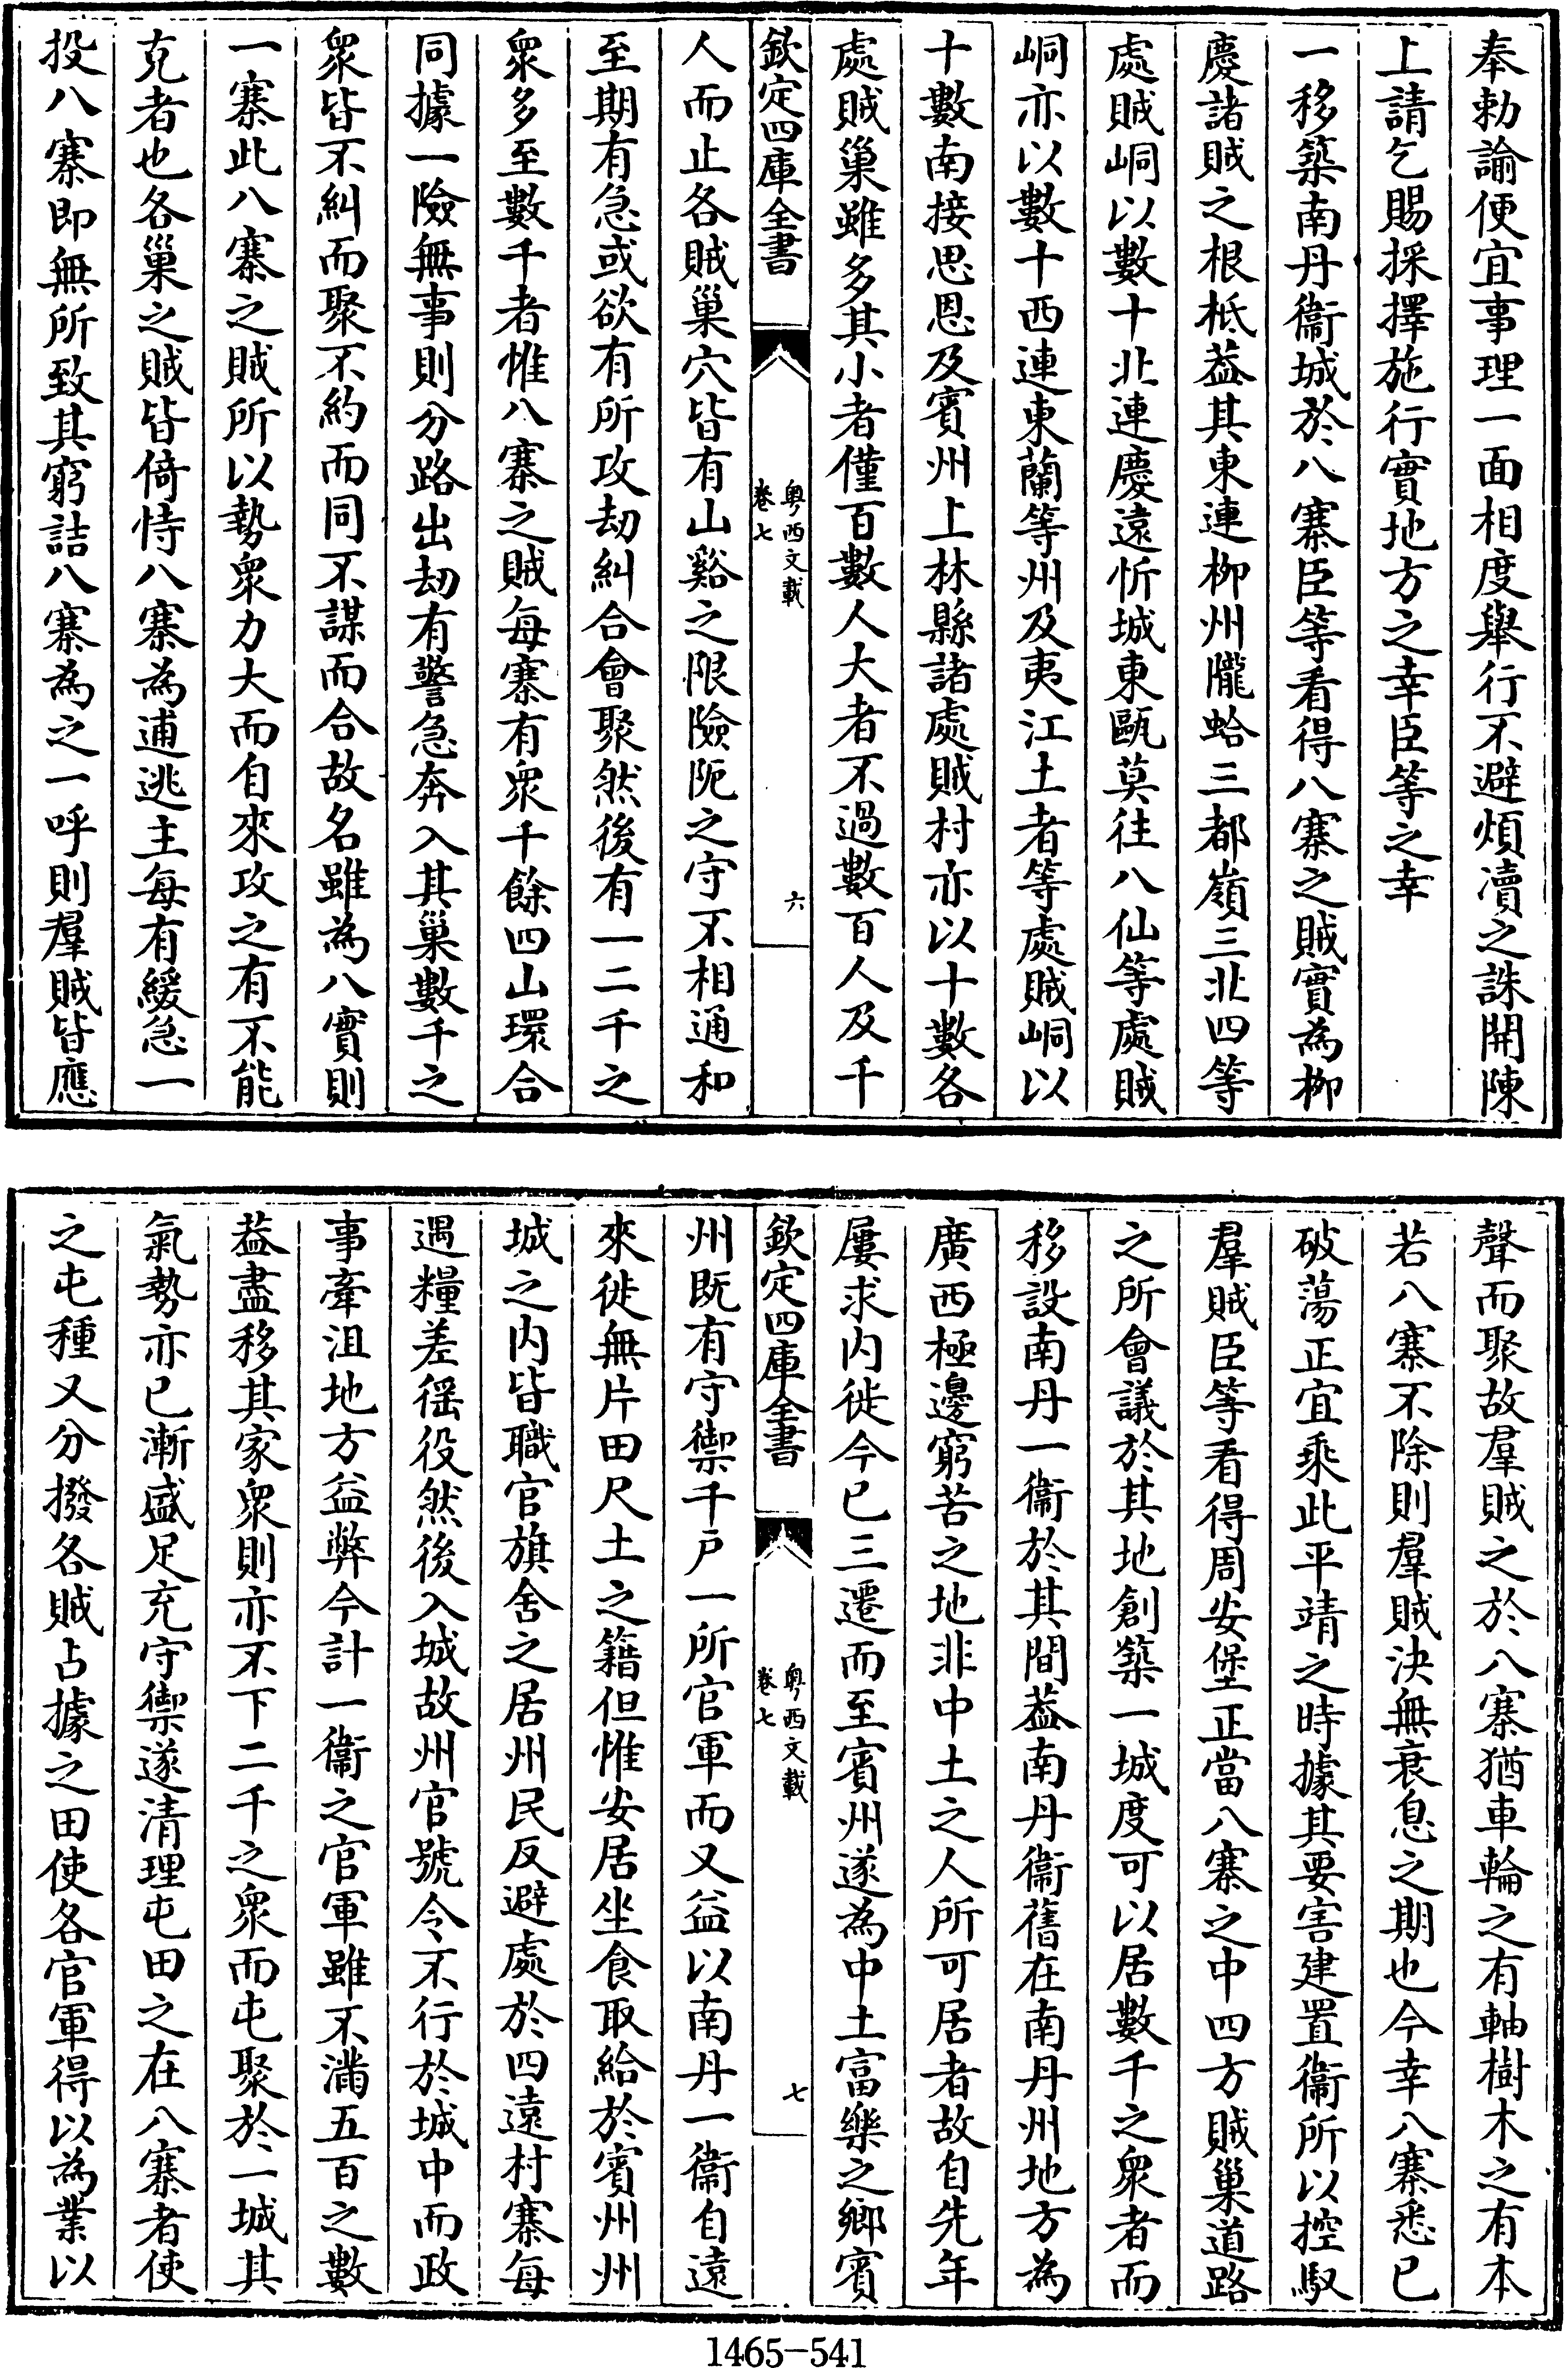 奉勅諭便宜事理一面相度舉行不避煩瀆之誅開陳
上請乞賜採擇施行實地方之幸臣等之幸
一移築南丹衞城於八寨臣等看得八寨之賊實為柳
慶諸賊之根柢葢其東連柳州隴蛤三都嶺三北四等
處賊峒以數十北連慶遠忻城東甌莫往八仙等處賊
峒亦以數十西連東蘭等州及夷江土者等處賊峒以
十數南接思恩及賓州上林縣諸處賊村亦以十數各
處賊巢雖多其小者僅百數人大者不過數百人及千
欽定四庫全書
粤西文載
卷七
六
人而止各賊巢穴皆有山谿之限險阨之守不相通和
至期有急或欲有所攻刼糾合會聚然後有一二千之
衆多至數千者惟八寨之賊每寨有衆千餘四山環合
同據一險無事則分路出刼有警急奔入其巢數千之
衆皆不糾而聚不約而同不謀而合故名雖為八實則
一寨此八寨之賊所以勢衆力大而自來攻之有不能
克者也各巢之賊皆倚恃八寨為逋逃主每有緩急一
投八寨即無所致其窮詰八寨為之一呼則羣賊皆應
聲而聚故羣賊之於八寨猶車輪之有軸樹木之有本
若八寨不除則羣賊決無衰息之期也今幸八寨悉已
破蕩正宜乘此平靖之時據其要害建置衞所以控馭
羣賊臣等看得周安堡正當八寨之中四方賊巢道路
之所會議於其地創築一城度可以居數千之衆者而
移設南丹一衞於其間葢南丹衞舊在南丹州地方為
廣西極邊窮苦之地非中土之人所可居者故自先年
屢求内徙今已三遷而至賓州遂為中土富樂之鄉賓
欽定四庫全書
粤西文載
卷七
七
州既有守禦千戶一所官軍而又益以南丹一衞自遠
來徙無片田尺土之籍但惟安居坐食取給於賓州州
城之内皆職官旗舍之居州民反避處於四遠村寨每
遇糧差徭役然後入城故州官號令不行於城中而政
事牽沮地方益弊今計一衞之官軍雖不滿五百之數
葢盡移其家衆則亦不下二千之衆而屯聚於一城其
氣勢亦已漸盛足充守禦遂清理屯田之在八寨者使
之屯種又分撥各賊占據之田使各官軍得以為業以
1465-541